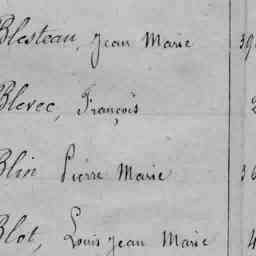 Blesteau, Jean Marie 39
Blevec, François 2
Blin Pierre Marie 36
Blot, Louis Jean Marie 4